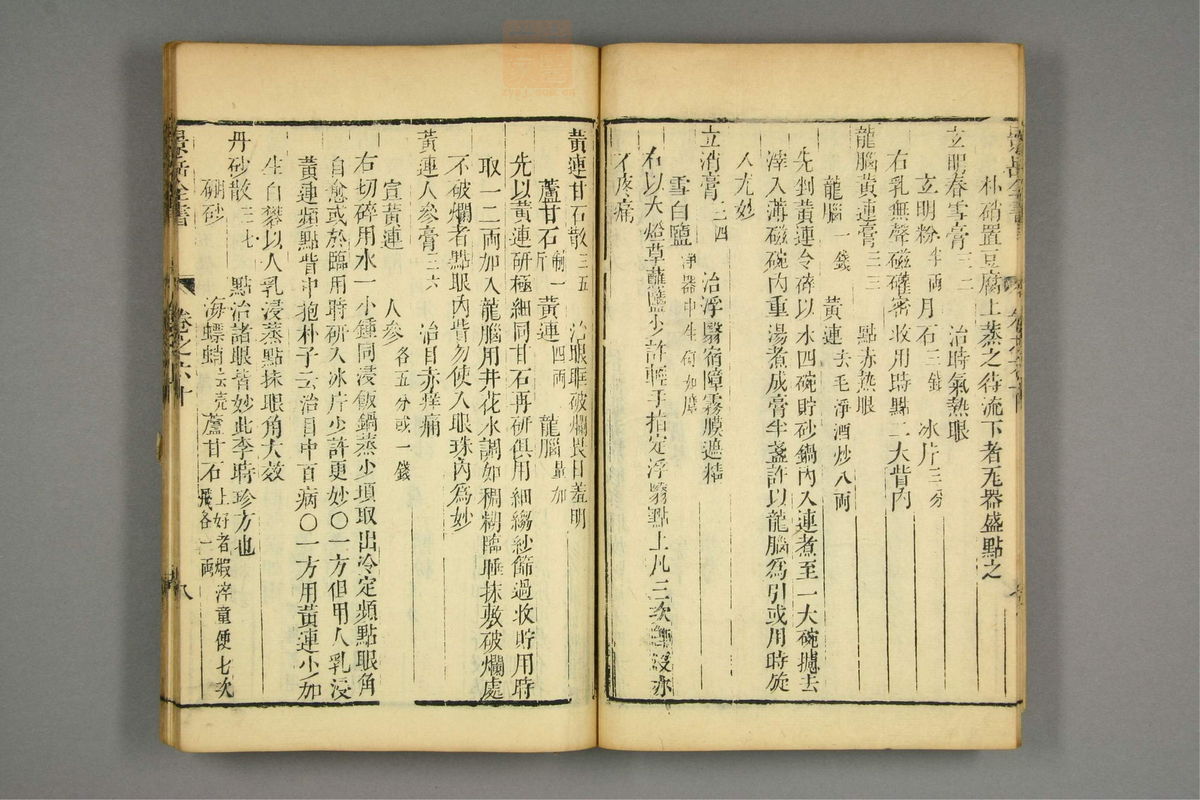 朴硝置豆腐上蒸之待流下者瓦器盛點之
玄明春雪膏三二 治時氣熱眼
玄明粉半両 月石三錢 冰片三分
右乳無聲磁確密收用時點二大眥內
龍腦黃連膏三三 點赤熱眼
龍腦一錢 黃連去毛淨酒炒八両
先剉黃連令碎以水四碗貯砂鍋內入連煮至一大碗攄去
滓入薄磁碗內重湯煮成膏半盞許以龍腦為引或用時旋
人尤妙
立消膏三四 治浮翳宿障霧膜遮睛
雪白鹽淨器中生 研如塵
右以大燈草蘸鹽少許輕手指定浮翳點上凡三次即沒亦
不疼痛
黃連甘石散三五 治眼眶破爛畏日羞明
蘆甘石製一斤 黃連四両 龍腦量加
先以黃連研極細同甘石再研俱用細縐紗篩過收貯用時
取一二両加入龍腦用井花水調如稠糊臨睡抹敷破爛處
不破爛者點眼內眥勿使入眼珠內為妙
黃連人參膏三六 治目赤痒痛
宣黃連 人參各五分或一錢
右切碎用水一小鍾同浸飯鍋蒸少頃取出冷定頻點眼角
自愈或於臨用時研入冰片少許更妙〇一方但用人乳浸
黃連頻點眥中抱朴子云治目中百病〇一方用黃連少加
生白礬以人乳浸蒸點抹眼角大效
丹砂散三七 點治諸眼皆妙此李時珍方也
硼砂 海螵蛸去壳 蘆甘石上好者煅淬童便七次飛各一両
景岳全書
卷之六十
八